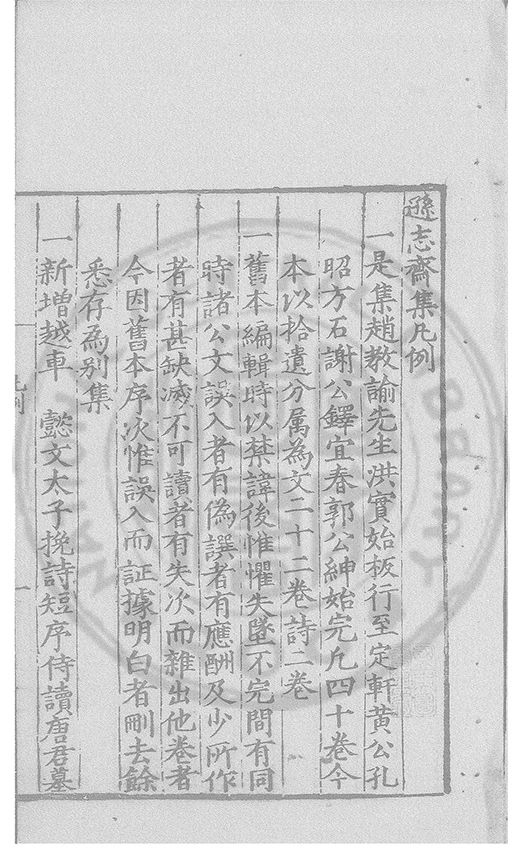 遜志齋集凡例
一是集趙教諭先生洪實始板行至定軒黃公孔
昭方石謝公鐸宜春郭公紳始完凡四十卷今
本以拾遺分属為文二十二卷詩二卷
一舊本編輯時以禁諱後惟懼失墜不完間有同
時諸公文誤入者有偽譔者有應酬及少所作
者有甚缺滅不可讀者有失次而雜出他卷者
今因舊本序次惟誤入而証據明白者刪去餘
悉存為别集
一新增越車 懿文太子挽詩短序侍讀唐君墓
凡例
一